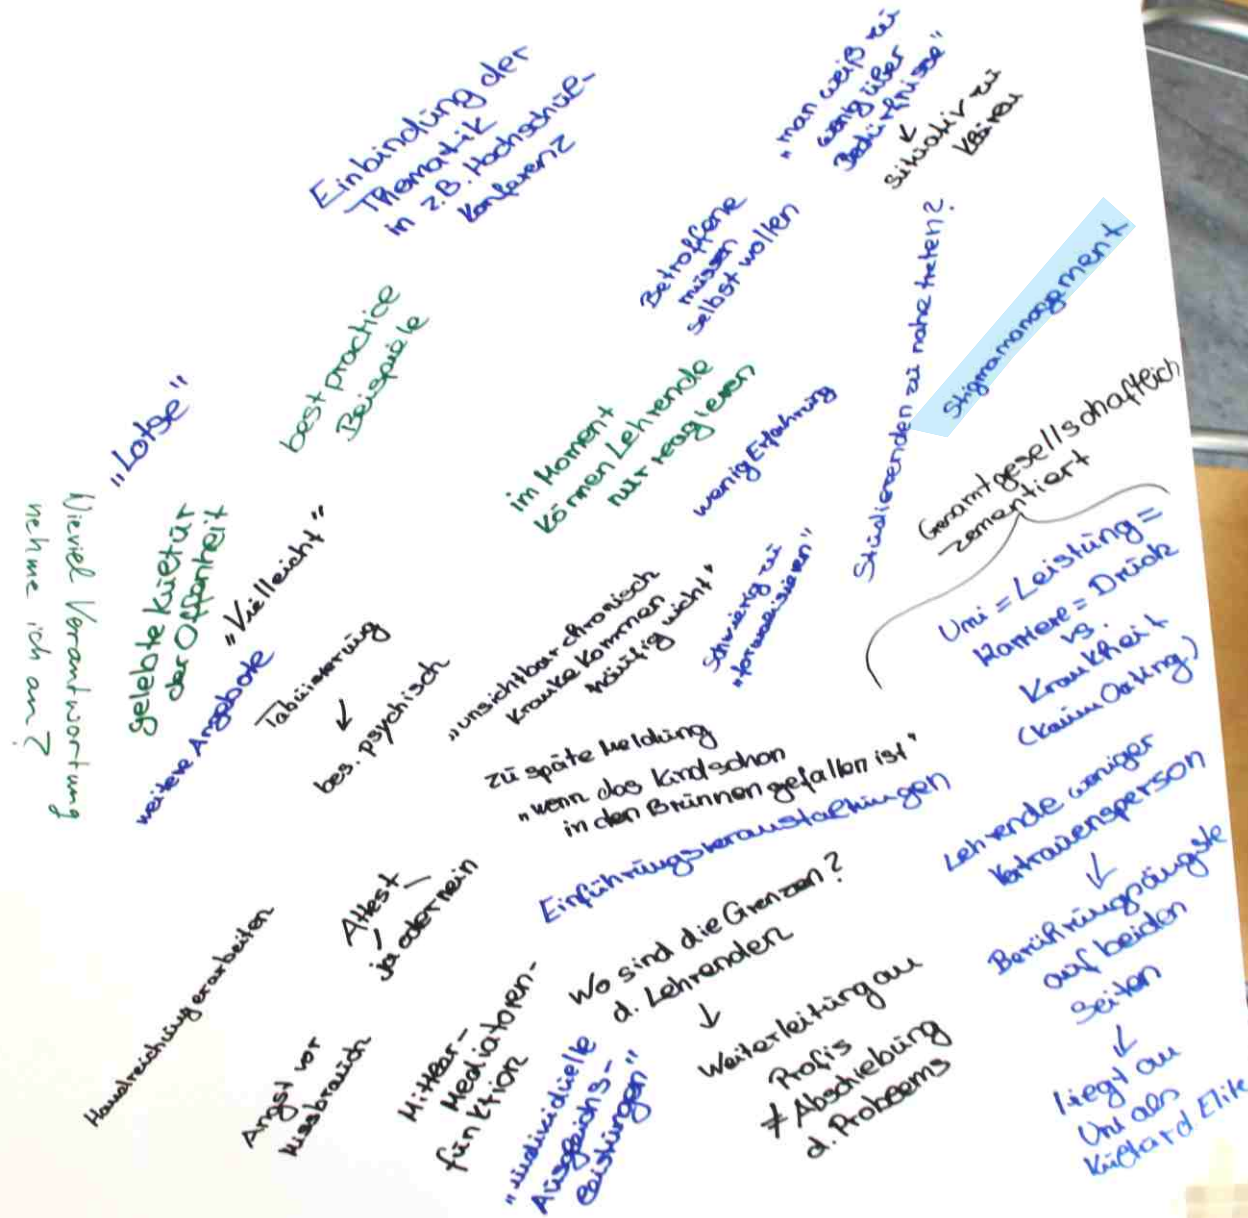 Einbindung der
Thematik
in z.B. Hochschul-
konferenz
„man weiß zu
wenig über
Bedürfnisse"
↙
situativ zu
klären
Betroffene
müssen
selbst wollen
Studierenden zu nahe treten?
Stigmamanagement
best practice
Beispiele
„Lotse"
im Moment
können Lehrende
nur reagieren
wenig Erfahrung
Gesamtgesellschaftlich
zementiert
Uni = Leistung =
Karriere = Druck
vs.
Krankheit
(kaum Outing)
Wieviel Verantwortung
nehme ich an?
gelebte Kultur
der Offenheit
„Vielleicht"
weitere Angebote
Tabuisierung
↙
bes. psychisch
„unsichtbar chronisch
Kranke kommen
häufig nicht"
schwierig zu
„formalisieren"
zu späte Meldung
„wenn das Kind schon
in den Brunnen gefallen ist"
Einführungsveranstaltungen
Lehrende weniger
Vertrauensperson
↓
Berührungsängste
auf beiden
Seiten
↓
liegt an
Uni als
Attest
ja oder nein
Handreichung erarbeiten
Angst vor
Missbrauch
Mittler-
Mediatoren-
funktion
Wo sind die Grenzen?
d. Lehrenden
↓
Weiterleitung an
Profis
≠ Abschiebung
d. Problems
„individuelle
Ausgleichs-
leistungen"